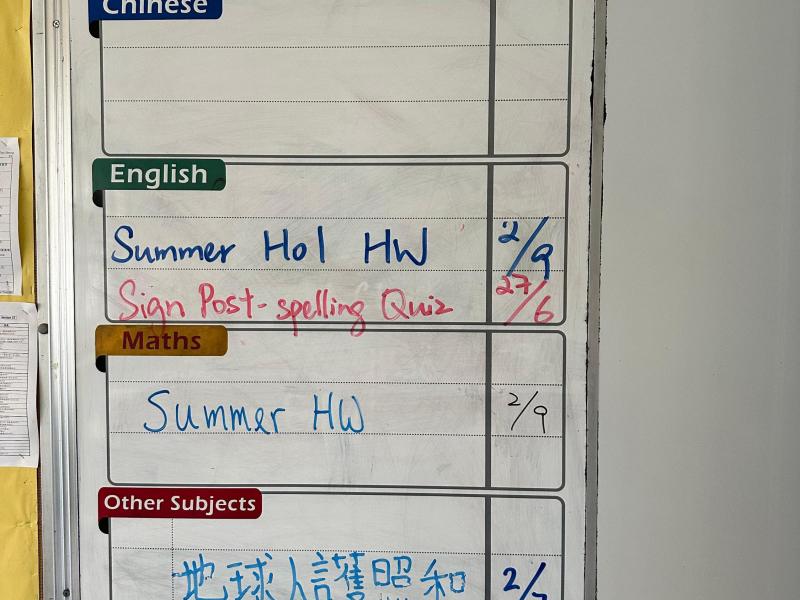 Chinese
English
Summer Hol HW 2/9
Sign Post-spelling Quiz 27/6
Maths
Summer HW 2/9
Other Subjects
地球人護照和 2/7